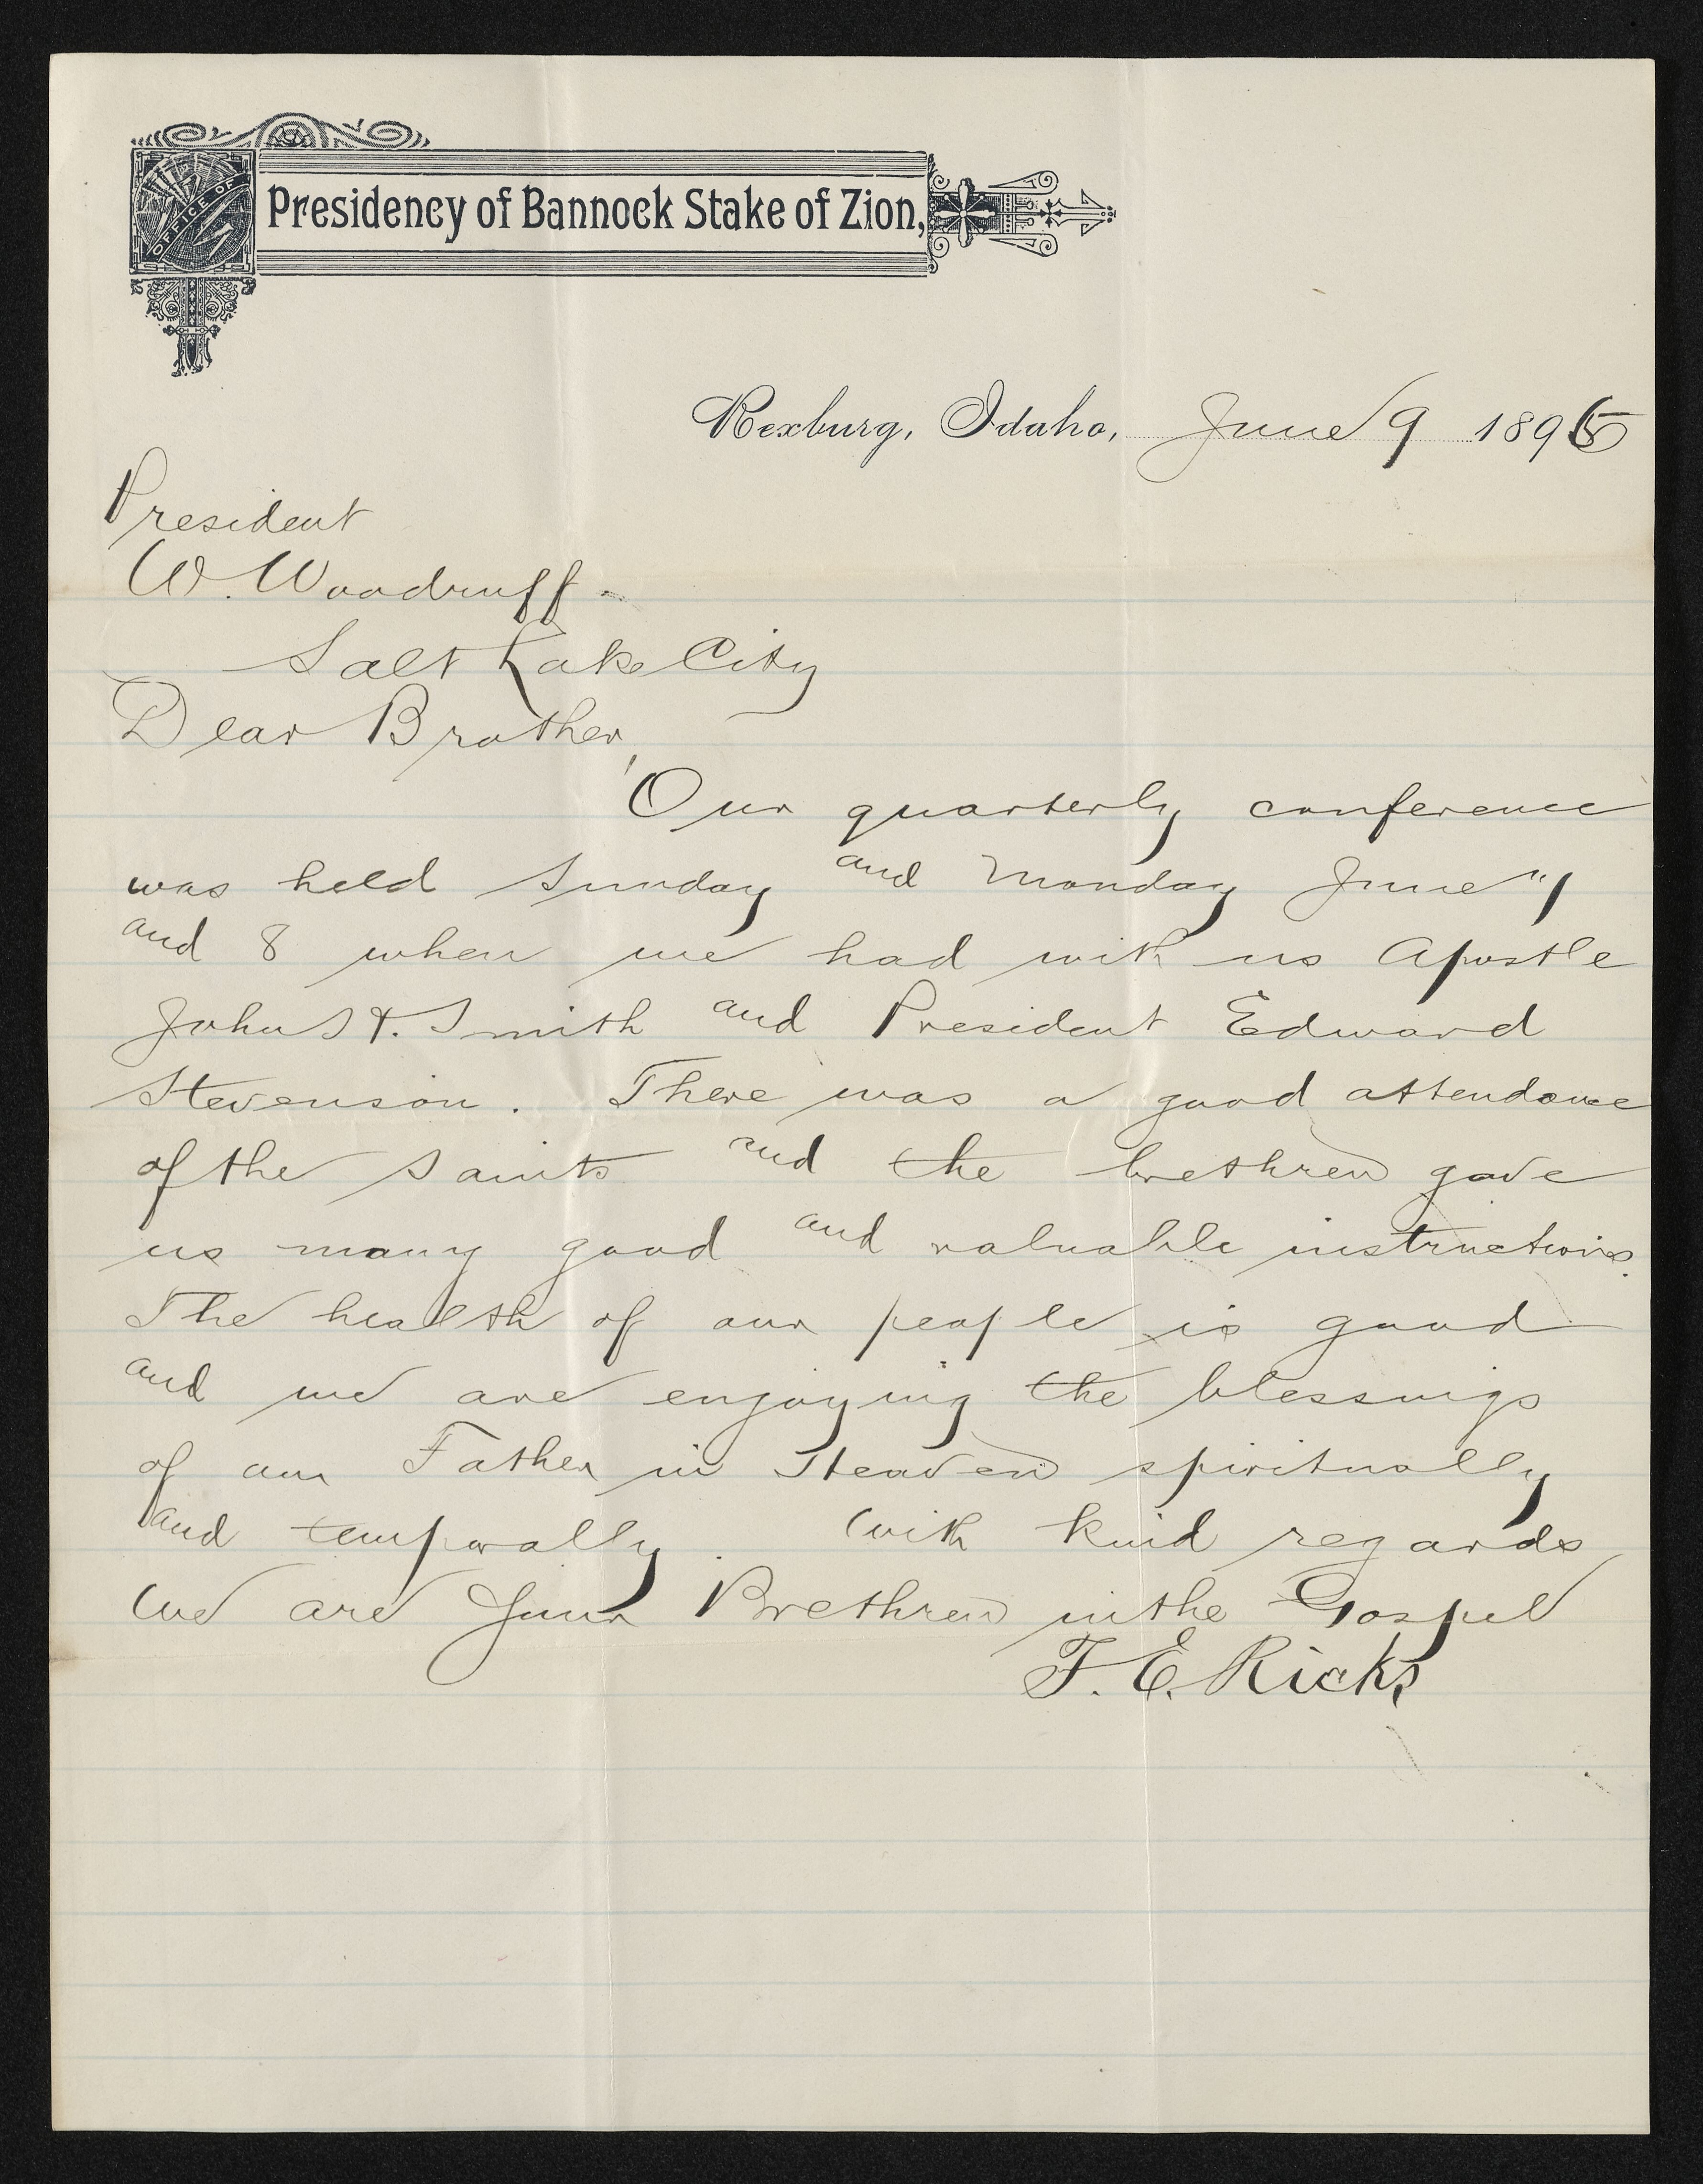 OFFICE OF
Presidency of Bannock Stake of Zion,
Rexburg, Idaho, June 9 1896
President
W. Woodruff.
Salt Lake City
Dear Brother,
Our quarterly conference
was held Sunday and Monday June 7
and 8 when we had with us Apostle
John H. Smith and President Edward
Stevenson. There was a good attendance
of the Saints and the brethren gave
us many good and valuable instructions.
The health of our people is good
and we are enjoying the blessings
of our Father in Heaven spiritually
and temporally. With kind regards
We are Your Brethren in the Gospel
T. E. Ricks